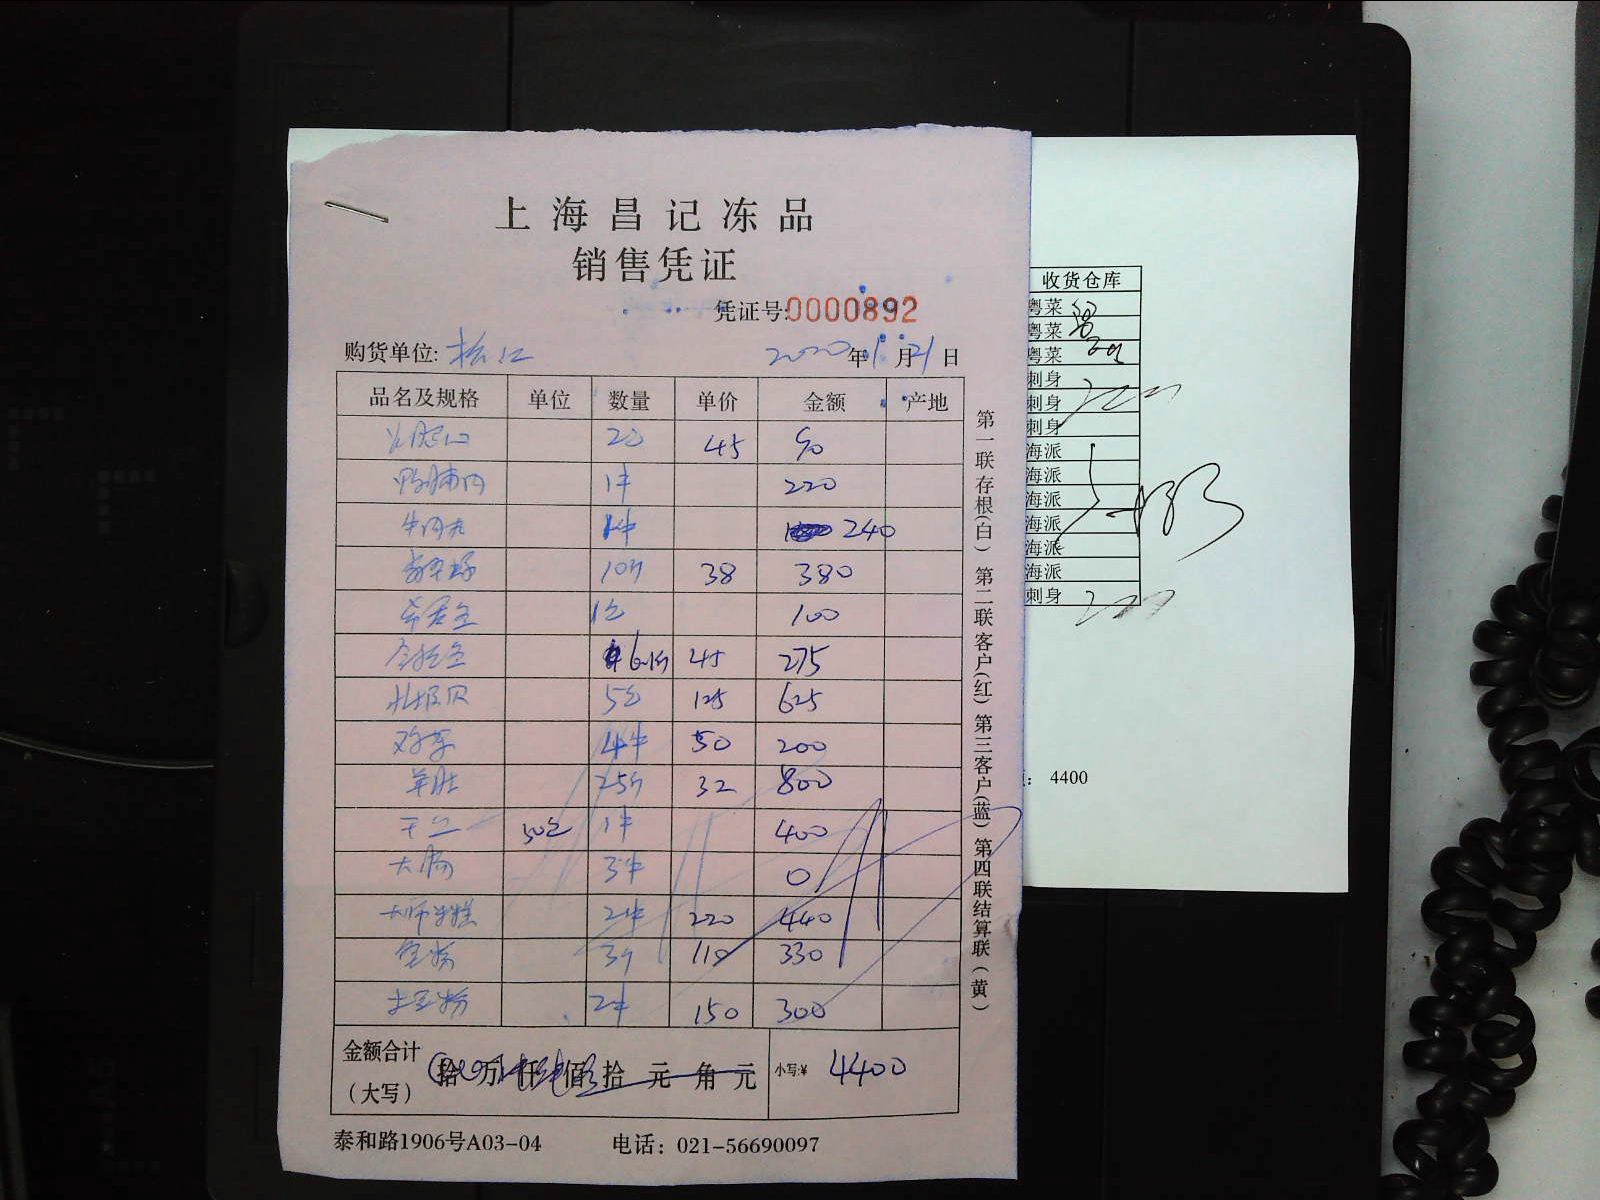 上海昌记冻品
销售凭证
凭证号:0000892
购货单位: 松江 2020年1月21日
品名及规格 单位 数量 单价 金额 产地
2包 45 90
鸭脯肉 1件 220
牛肉丸 1件 240
10斤 38 380
1包 100
45 275
北极贝 5包 125 625
4件 50 200
羊肚 25斤 32 800
50包 1件 400
大肠 3件 0
2件 220 440
3斤 110 330
2件 150 300
金额合计
(大写) 拾 万 仟 佰 拾 元 角 元 小写:¥ 4400
泰和路1906号A03-04 电话：021-56690097
第一联存根(白) 第二联客户(红) 第三客户(蓝) 第四联结算联(黄)
收货仓库
粤菜
粤菜
粤菜
刺身
刺身
刺身
海派
海派
海派
海派
海派
海派
刺身
：4400